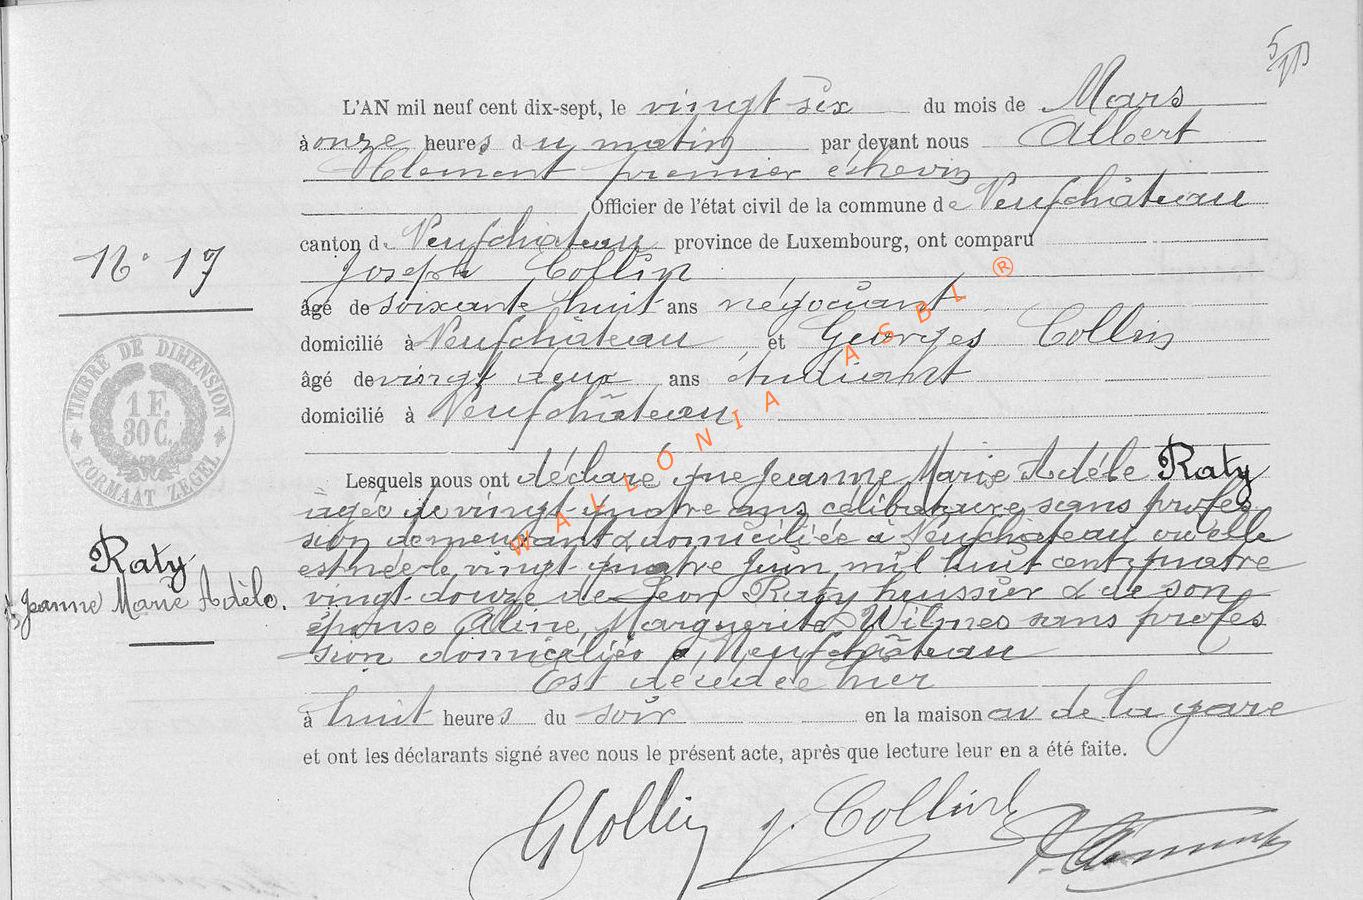 L'AN mil neuf cent dix-sept, le vingt six du mois de Mars
à onze heures du matin par devant nous Albert
Clement premier échevin
Officier de l'état civil de la commune de Neufchâteau
canton de Neufchateau province de Luxembourg, ont comparu
N° 17
Joseph Collin
âgé de soixante huit ans négociant
domicilié à Neufchâteau et Georges Collin
âgé de vingt deux ans étudiant
domicilié à Neufchâteau
TIMBRE DE DIMENSION
1 F.
30 C.
FORMAAT ZEGEL
WALLONIA ASBL ®
Lesquels nous ont déclaré que Jeanne Marie Adéle Raty
agée de vingt-quatre ans célibataire, sans profes
sion demeurant & domiciliée à Neufchateau où elle
est née le vingt-quatre Juin mil huit cent quatre
vingt-douze de Léon Raty huissier & de son
épouse Aline, Marguerite Wilmes sans profes
sion domiciliés à Neufchâteau
Raty
Jeanne Marie Adèle.
Est décédée hier
à huit heures du soir en la maison av de la gare
et ont les déclarants signé avec nous le présent acte, après que lecture leur en a été faite.
G Collin J. Collin Clement